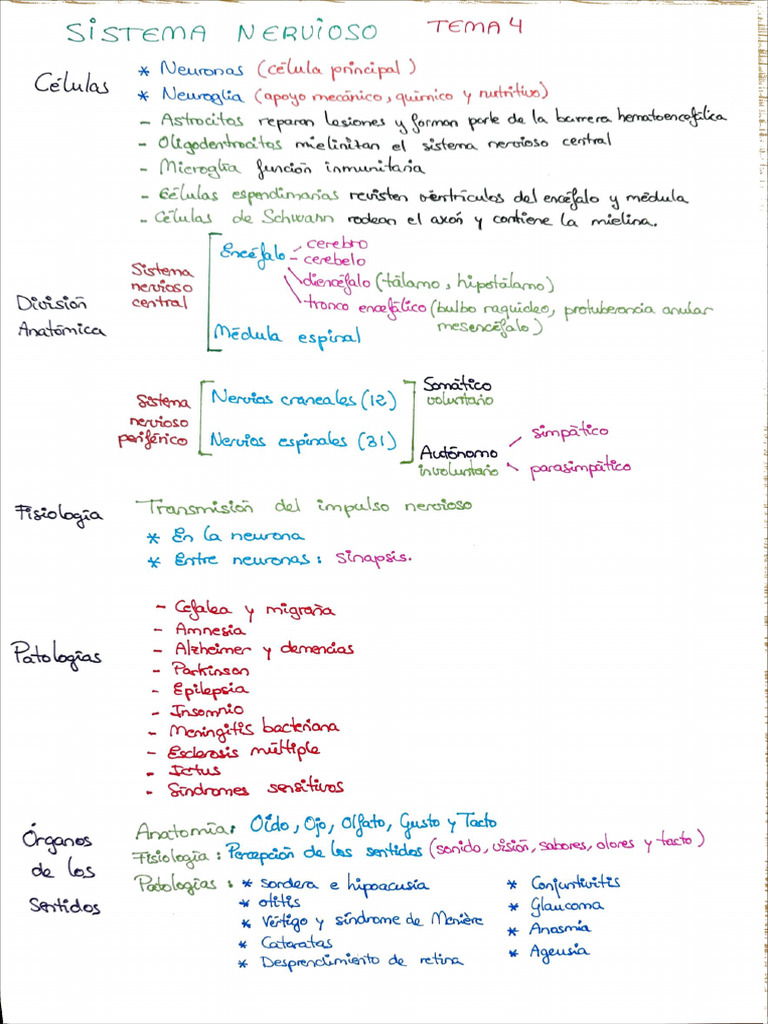 SISTEMA NERVIOSO TEMA 4
Células
* Neuronas (célula principal)
* Neuroglia (apoyo mecánico, químico y nutritivo)
- Astrocitos reparan lesiones y forman parte de la barrera hematoencefálica
- Oligodentrocitos mielinitan el sistema nervioso central
- Microglía función inmunitaria
- Células espendimarias revisten ventrículos del encéfalo y médula
- Células de Schwann rodean el axón y contiene la mielina.
División
Anatómica
Sistema
nervioso
central
Encéfalo
cerebro
cerebelo
diencéfalo (tálamo, hipotálamo)
tronco encefálico (bulbo raquídeo, protuberancia anular
mesencéfalo)
Médula espinal
Sistema
nervioso
periférico
Nervios craneales (12)
Nervios espinales (31)
Somático
voluntario
Autónomo
involuntario
simpático
parasimpático
Fisiología
Transmisión del impulso nervioso
* En la neurona
* Entre neuronas: sinapsis.
Patologías
- Cefalea y migraña
- Amnesia
- Alzheimer y demencias
- Parkinson
- Epilepsia
- Insomnio
- Meningitis bacteriana
- Esclerosis múltiple
- Ictus
- Síndromes sensitivos
Órganos
de los
sentidos
Anatomía: Oído, Ojo, Olfato, Gusto y Tacto
Fisiología: Percepción de los sentidos (sonido, visión, sabores, olores y tacto)
Patologías: * sordera e hipoacusia
* otitis
* Vértigo y síndrome de Menière
* Cataratas
* Desprendimiento de retina
* Conjuntivitis
* Glaucoma
* Anosmia
* Ageusia